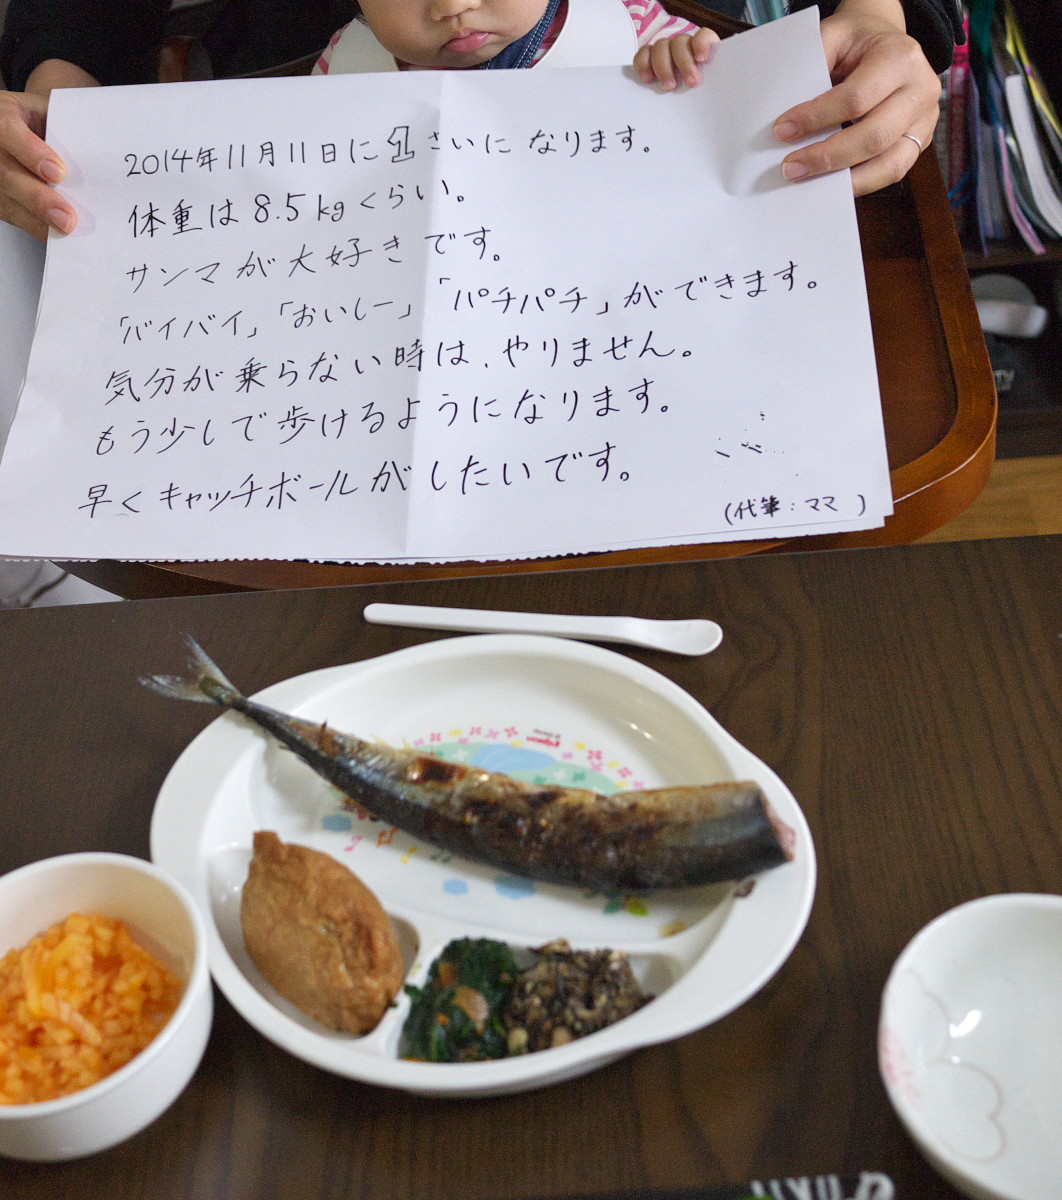 2014年11月11日に1さいになります。
体重は8.5kgくらい。
サンマが大好きです。
「バイバイ」「おいしー」「パチパチ」ができます。
気分が乗らない時は、やりません。
もう少しで歩けるようになります。
早くキャッチボールがしたいです。
(代筆:ママ )